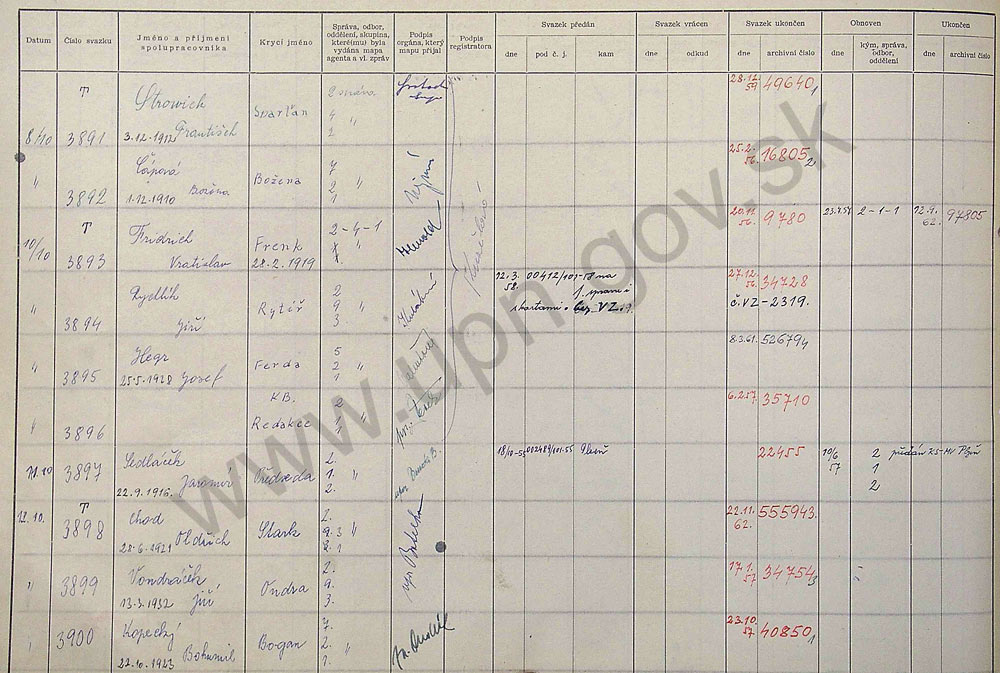 Datum
Číslo svazku
Jméno a příjmení spolupracovníka
Krycí jméno
Správa, odbor, oddělení, skupina, které(mu) byla vydána mapa agenta a vl. zpráv
Podpis orgána, který mapu přijal
Podpis registratora
Svazek předán
dne
pod č. j.
kam
Svazek vrácen
dne
odkud
Svazek ukončen
dne
archivní číslo
Obnoven
dne
kým, správa, odbor, oddělení
Ukončen
dne
archivní číslo
T
8/10 3891 Strowich František 3.12.1912
2 správa
4 "
2
28.12. 59 49640 1
" 3892 Čápová Božena 1.12.1910 Božena
7
2 "
1
25.2. 56. 16805 2
T
10/10 3893 Fridrich Vratislav Frenk 28.2.1919
2-4-1
20.11. 56. 9780
2-1-1
12.9. 62. 97805
" 3894 Rydlík Jiří Rytíř
2
9 "
3
12.3. 58. 00412/103-58 na
1. správu i
skartami
27.12. 56. 34728
č. VZ-2319.
" 3895 Hegr Josef 25.5.1928 Ferda
5
2 "
1
8.3.61. 526794
" 3896 KB. Redakce
2
1 "
1
6.2.57. 35710
11.10 3897 Sedláček Jaromír 22.9.1916. Medveda
2.
1. "
2.
18/10-55 002489/101-55 Plzeň
22455
10/6 57
2
1
2
předán KS-MV Plzeň
T
12.10. 3898 Chod Oldřich 28.6.1921 Stark
2.
2.3 "
2.1
22.11. 62. 555943.
" 3899 Vondráček Jiří 13.3.1932 Ondra
2.
9.
3.
17.1. 57 34754 3
" 3900 Kopecký Bohumil 22.10.1923 Bogan
7.
2. "
1.
23.10. 57 40850 1
www.upn.gov.sk